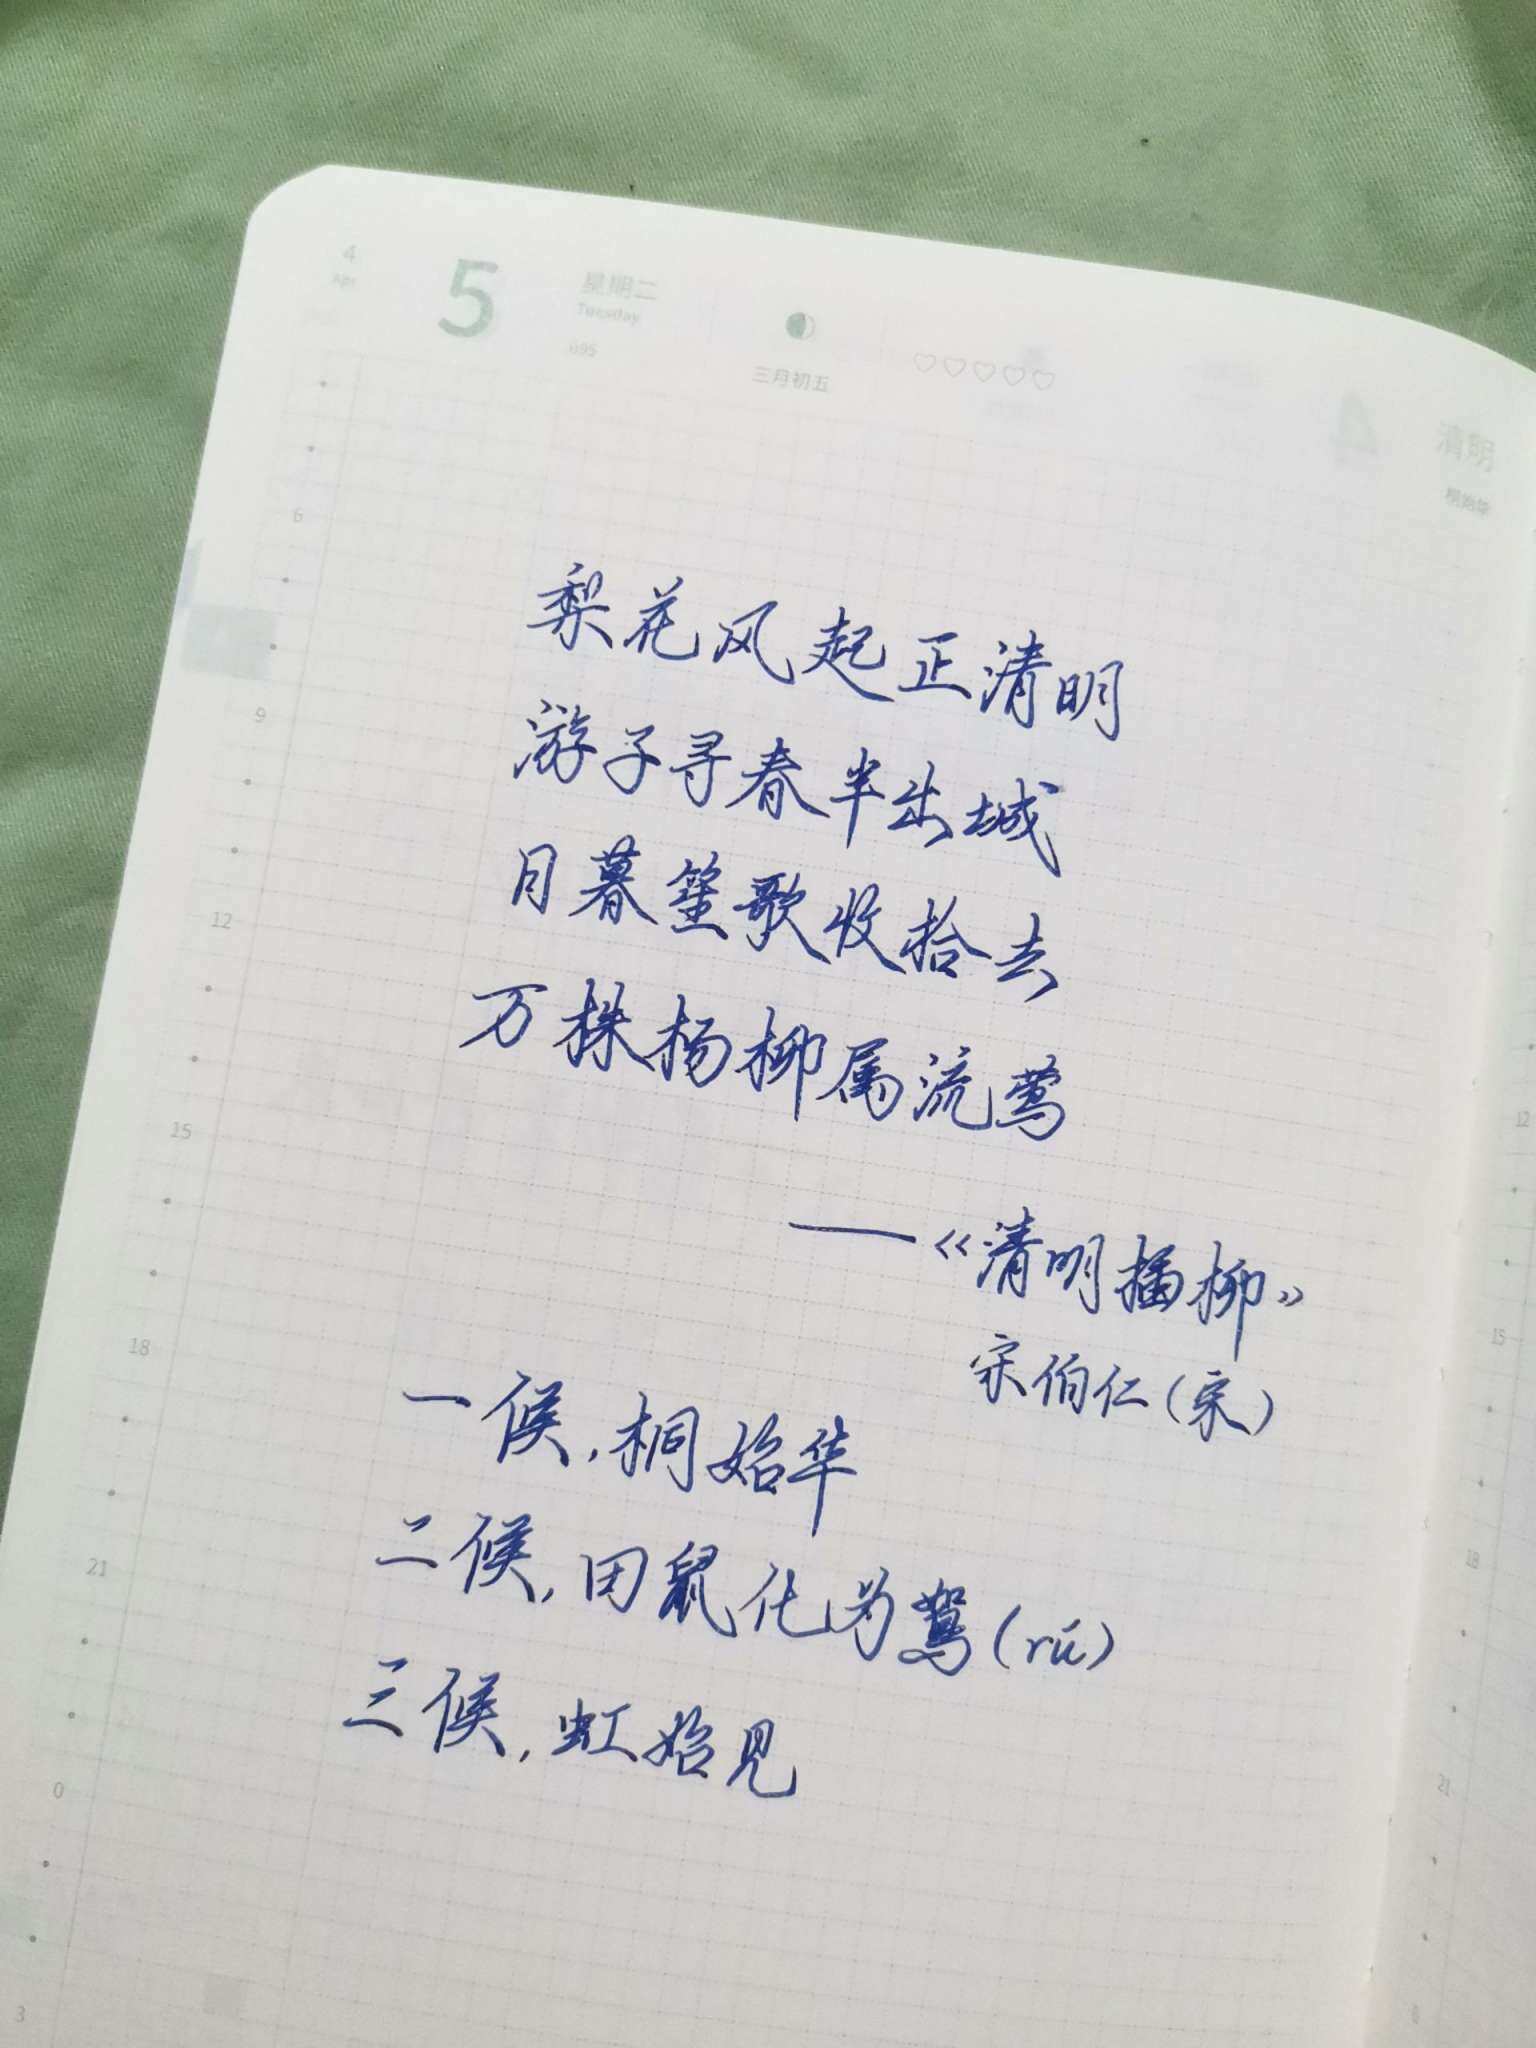 4
Apr
5
星期二
Tuesday
095
三月初五
4
清明
桐始华
梨花风起正清明
游子寻春半出城
日暮笙歌收拾去
万株杨柳属流莺
——《清明插柳》
宋伯仁(宋)
一候,桐始华
二候,田鼠化为鴽(rú)
三候,虹始见
6
9
12
15
18
21
0
3
12
15
18
21